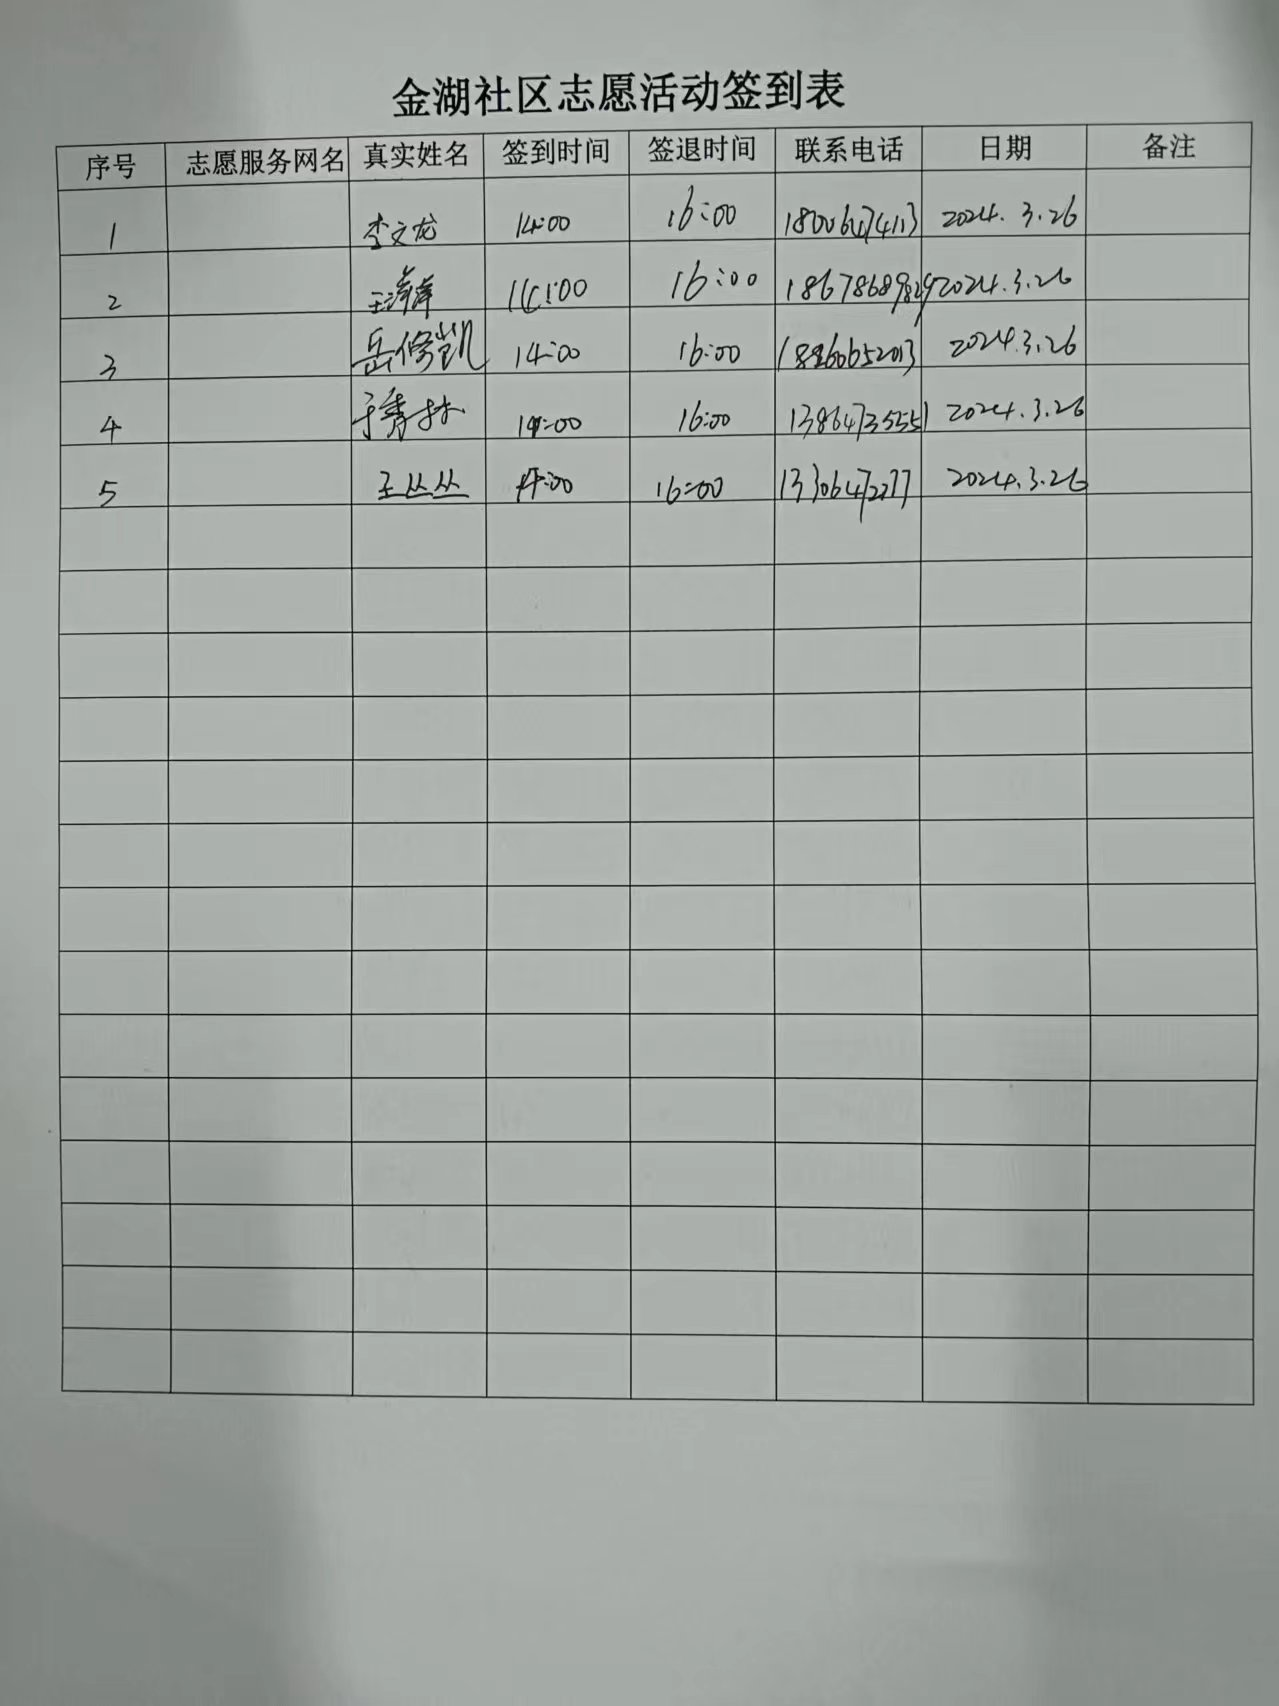 金湖社区志愿活动签到表
序号 志愿服务网名 真实姓名 签到时间 签退时间 联系电话 日期 备注
1 李文龙 14:00 16:00 2024.3.26
2 14:00 16:00 2024.3.26
3 岳修凯 14:00 16:00 18860652013 2024.3.26
4 于秀林 14:00 16:00 13864735551 2024.3.26
5 王丛丛 14:00 16:00 13306472277 2024.3.26